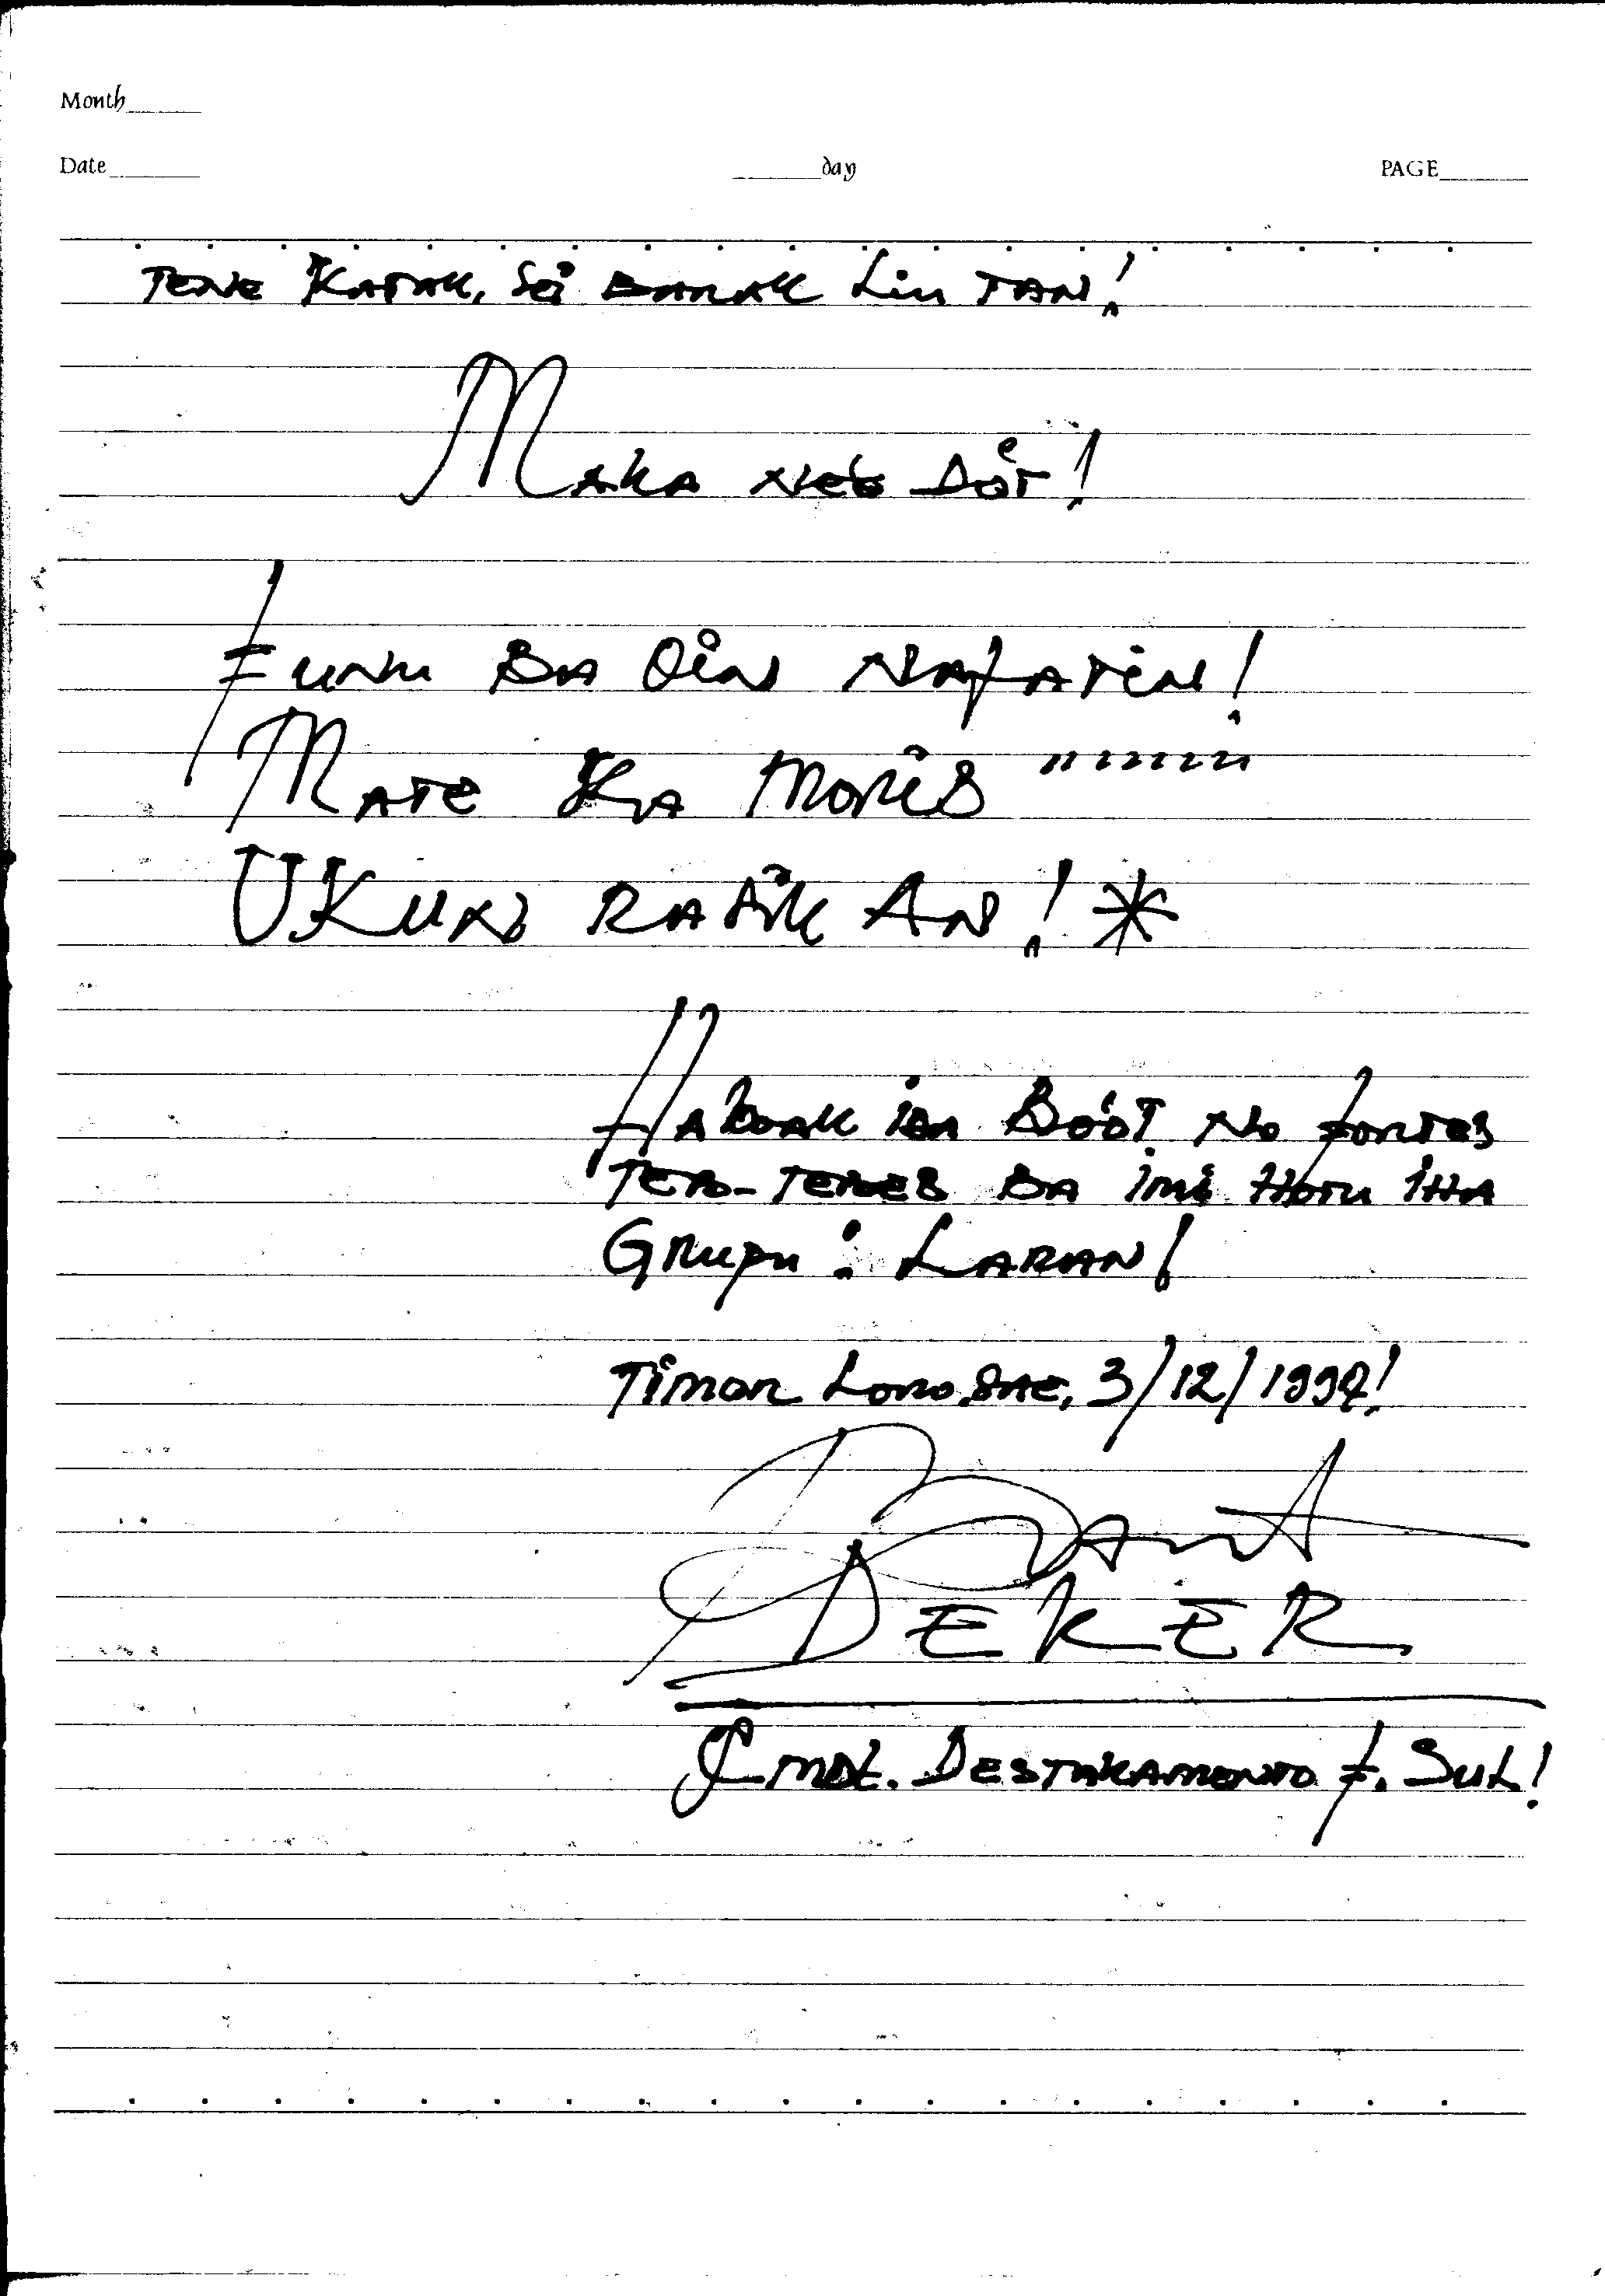 Month
Date
day
PAGE
TENE KATAK, Sei BARAK Liu TAN!
MAKA NEE DEIT!
FUNU BA OIN NAFATIN!
MATE KA MORIS """"""
UKUN RASIK AN! *
HAKOAK IDA BOOT NO FORTES
TEB-TEBES BA IMI HOTU IHA
GRUPU: LARAN!
TIMOR LOROSAE, 3/12/1997!
DEKER
CMDT. DESTAKAMENTO F. SUL!